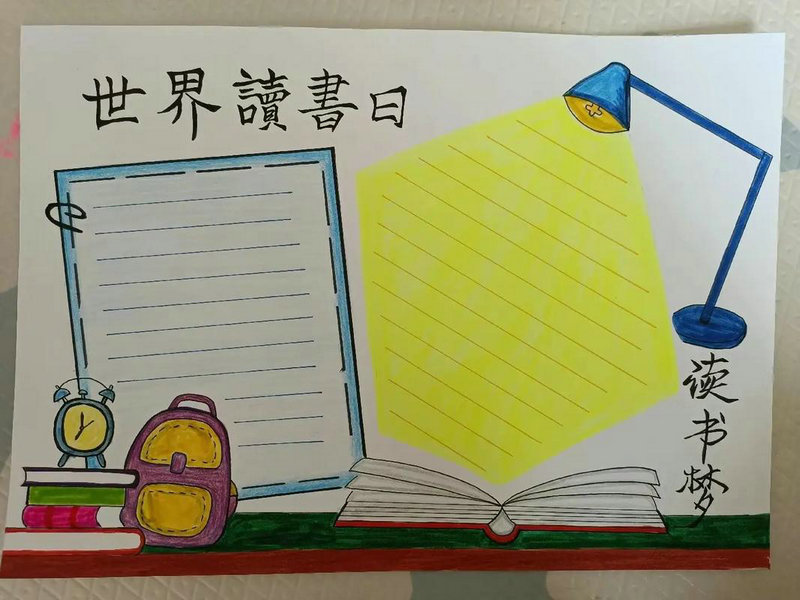 世界讀書日
读书梦